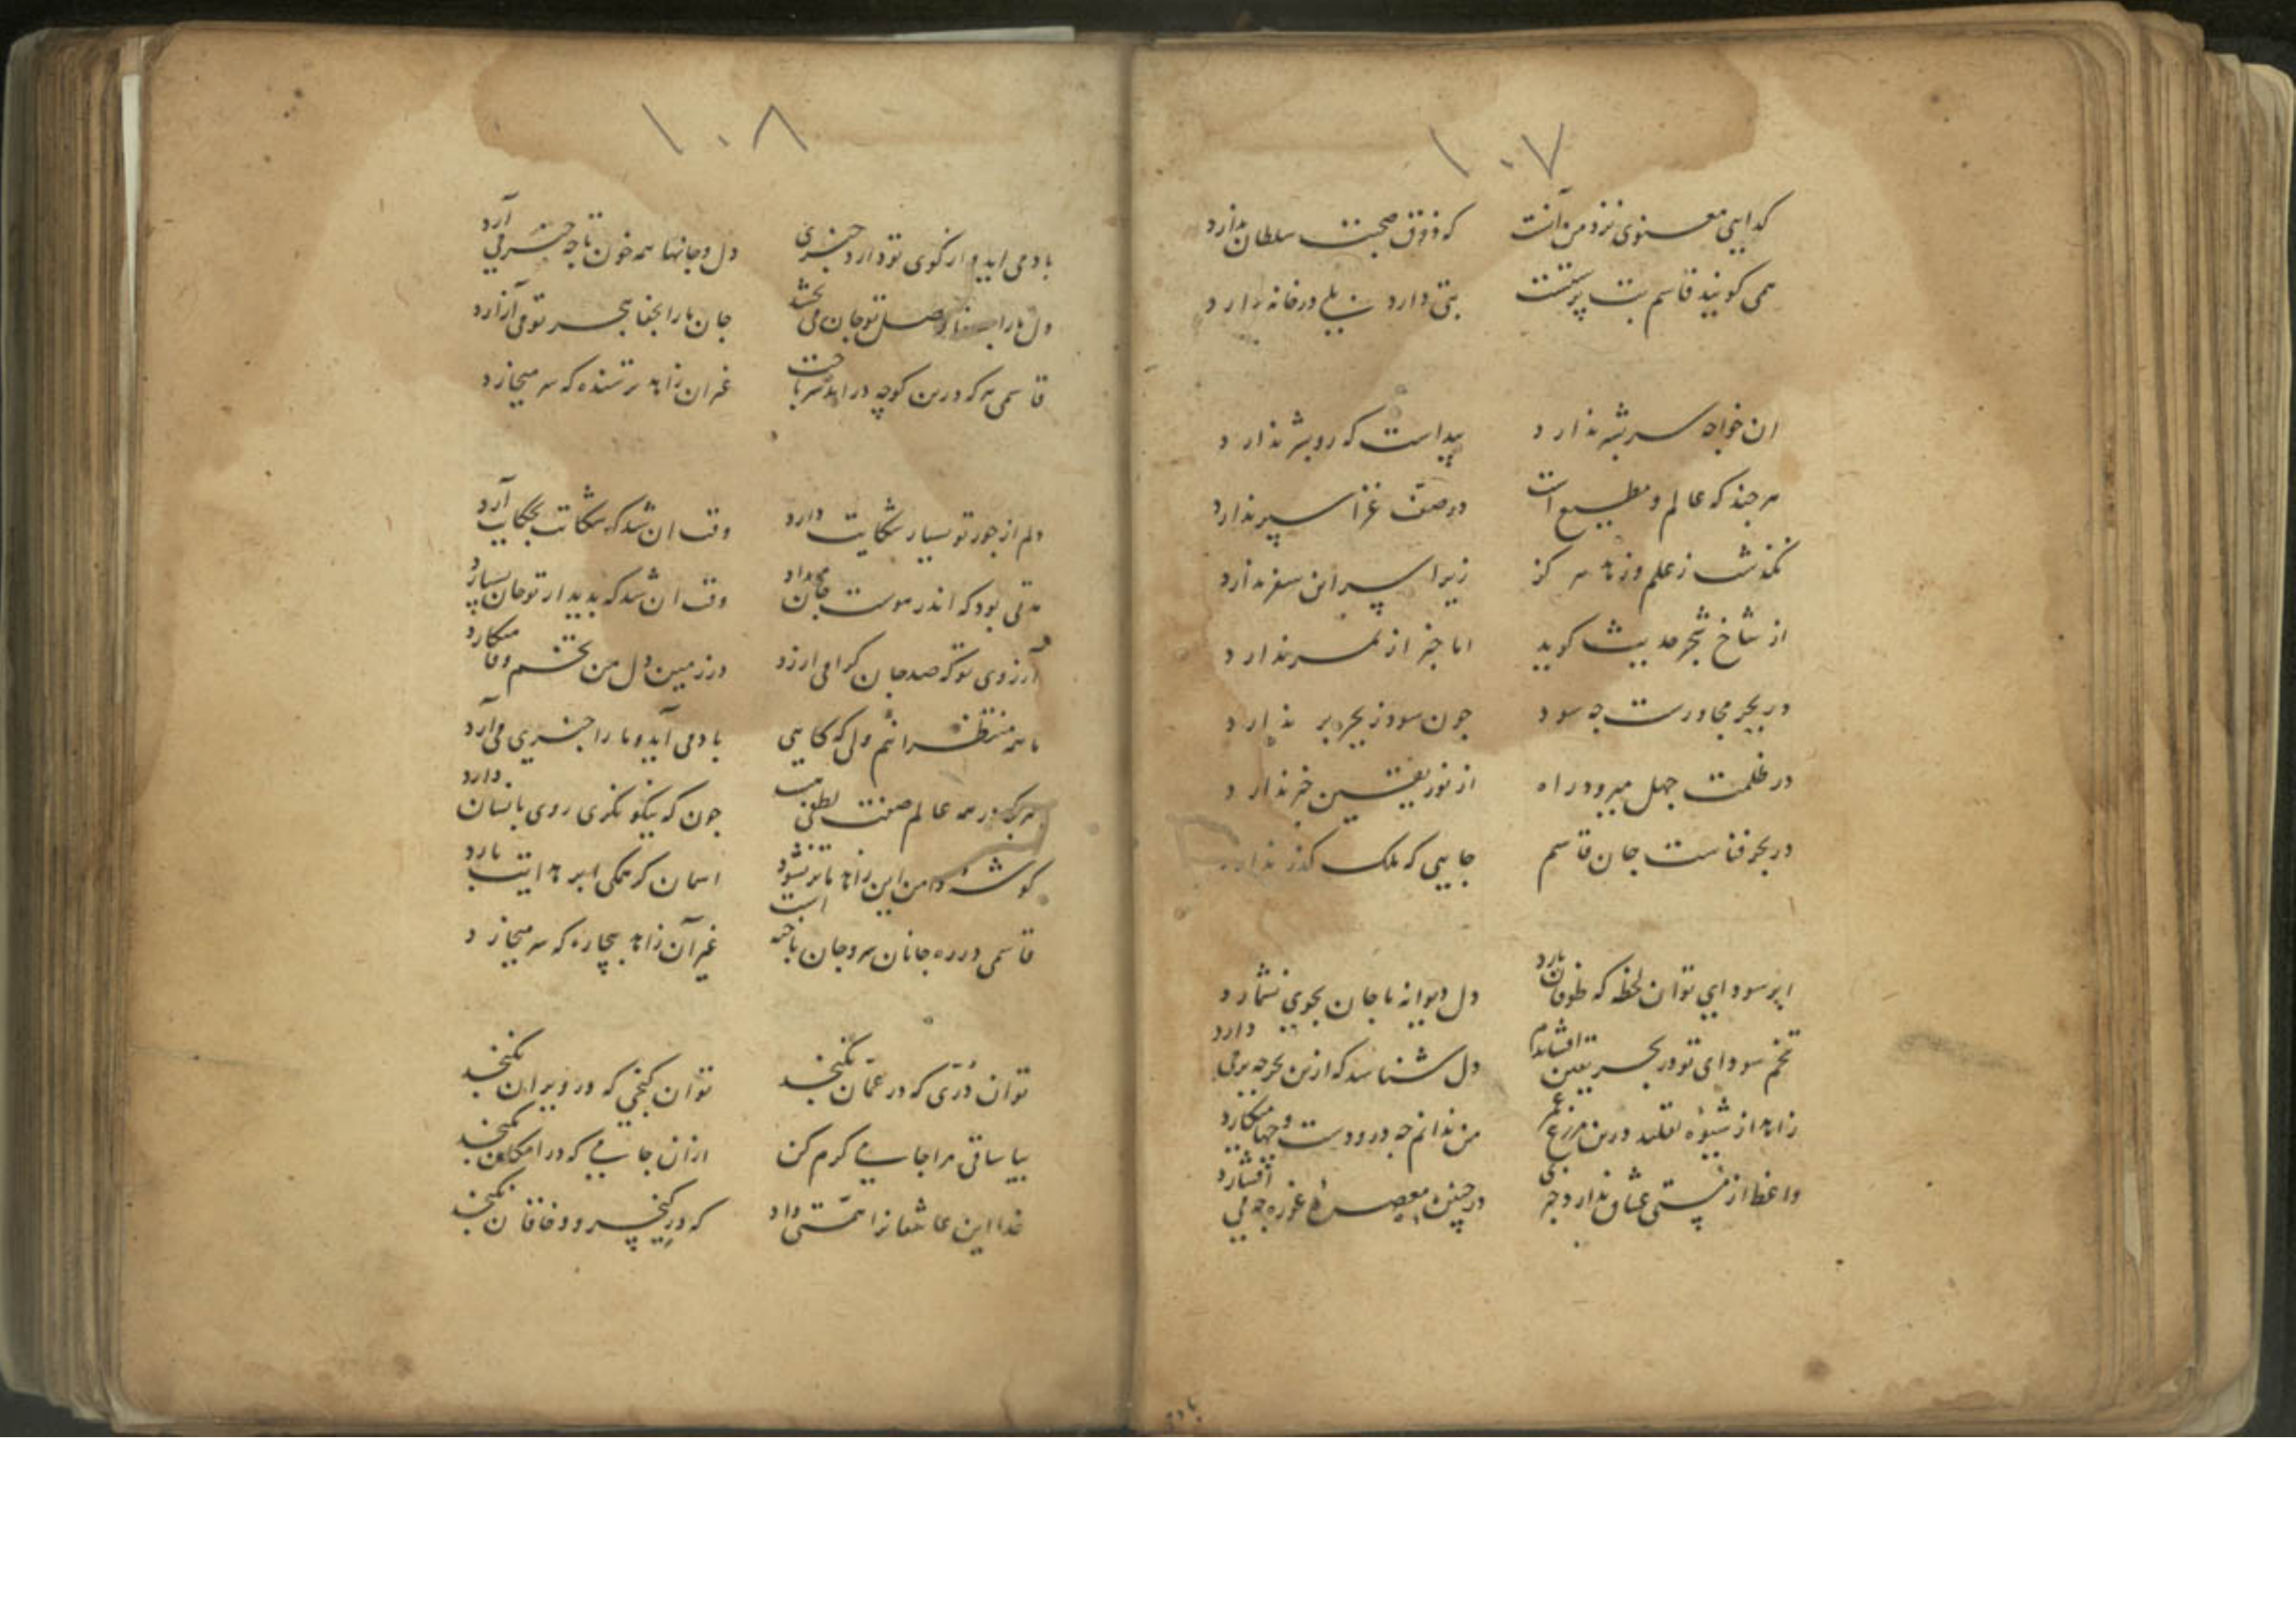 ۱۰۷
کدایی معنوی نزد من آنست که ذوق صحبت سلطان ندارد
همی کویند قاسم بت پرستست بتی دارد بلی در خانه دارد
ان خواجه سر بشر ندارد پیداست که رو بشر ندارد
هر جند که عالم و مطیع است در صف غزا سپر ندارد
نکذشت ز علم و زهد هر کز زیرا سر این سفر ندارد
از شاخ شجر حدیث کوید اما خبر از ثمر ندارد
در بحر مجاورست جه سود جون سود ز بحر و بر ندارد
در ظلمت جهل میرود راه از نور یقین خبر ندارد
در بحر فناست جان قاسم جایی که ملک کذر ندارد
ابر سودایی تو ان لحظه که طوفان بارد دل دیوانه ما جان بجوی نشمارد
تخم سودای تو در بحر یقین افشاندم دل شناسد که ازین بحر جه برمی دارد
زاهد از شیوه تقلید درین مزرع غم من ندانم جه درودست و جها میکارد
واعظ از مستی عشاق ندارد خبری در جنین معصره غوره جه می افشارد
بادمی
۱۰۸
بادمی اید و از کوی تو دارد خبری دل و جانها همه خون تا جه خبر می آرد
دل ما را وصل تو جان می بخشد جان ما را بجفا هجر تو می آزارد
قاسمی هر که درین کوچه در اید سر باخت غیر ان زاهد ترسنده که سر میخارد
دلم از جور تو بسیار شکایت دارد وقت ان شد که شکایت بحکایت آرد
مدتی بود که اندر هوست جان میداد وقت ان شد که بدیدار تو جان بسپارد
آرزوی تو که صد جان کرامی ارزد در زمین دل من تخم وفا میکارد
ما همه منتظرانیم ولی که کاهی بادمی آید و ما را خبری می آرد
هر کجا در همه عالم صفت لطفی هست جون که نیکو نکری روی بانسان دارد
کوشه دامن این زاهد ما تر نشود اسمان کر همکی ابر هدایت بارد
قاسمی در ره جانان سر و جان باخته است غیر آن زاهد بیچاره که سر میخارد
تو ان درّی که در عمّان نکنجد تو ان کنجی که در ویران نکنجد
بیا ساقی مرا جامی کرم کن ازان جامی که در امکان نکنجد
خدا این عاشقانرا همّتی داد که در کیخسرو و خاقان نکنجد